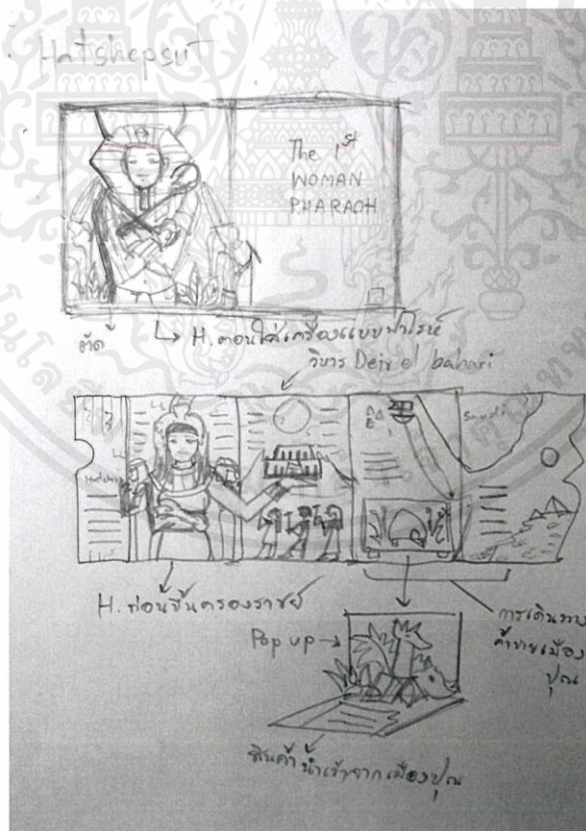 Hatshepsut
The 1st
WOMAN
PHARAOH
ตัด
H. ตอนใส่เครื่องแบบฟาโรห์
วิหาร Deir el bahari
Saudi
H. ก่อนขึ้นครองราชย์
Pop up
การเดินทาง
ค้าขายเมือง
ปุณ
สินค้านำเข้าจากเมืองปุณ